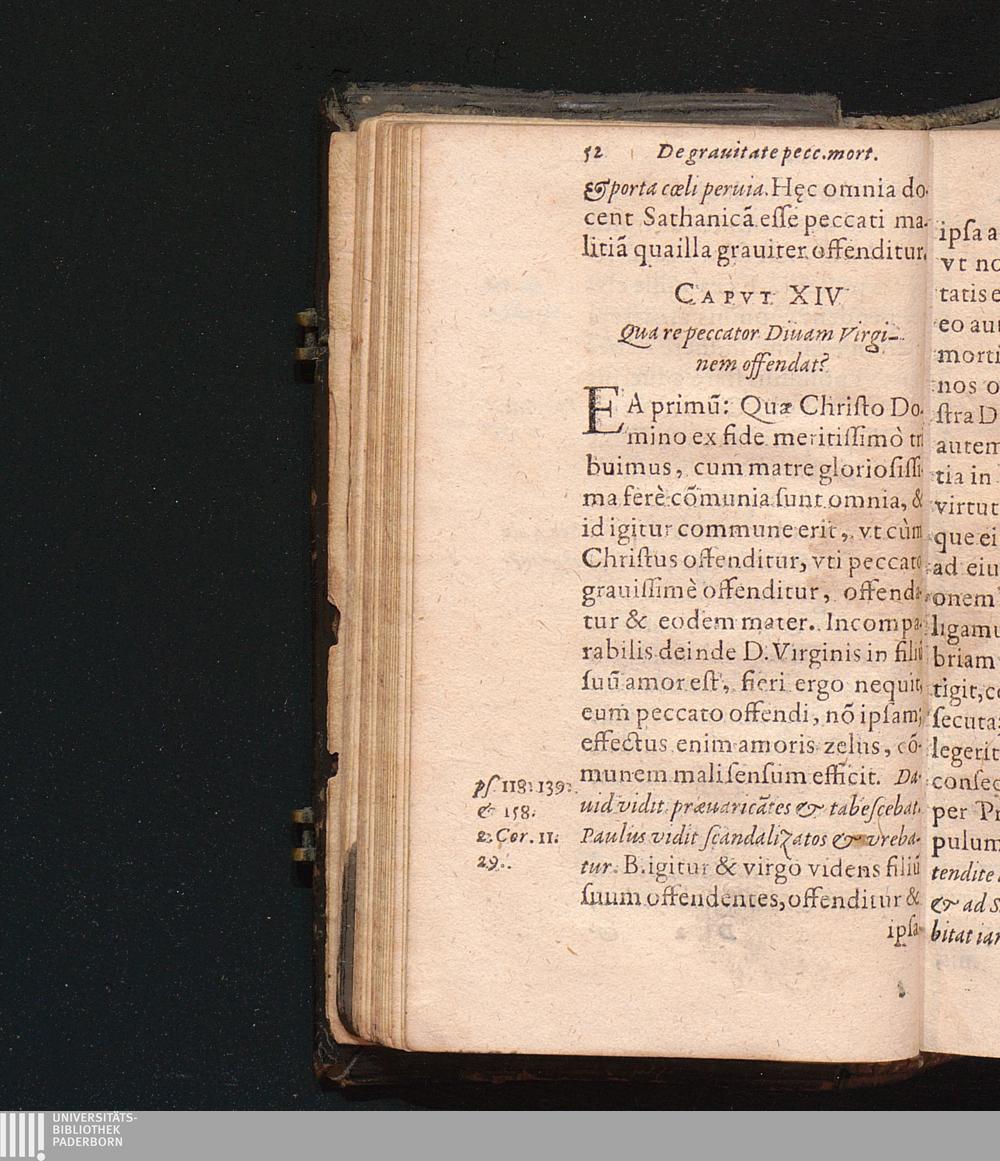 52 De grauitate pecc. mort.
& porta cœli peruia. Hęc omnia do-
cent Sathanicā esse peccati ma-
litiā qua illa grauiter offenditur.
CAPVT XIV
Qua re peccator Diuam Virgi-
nem offendat?
EA primū: Quæ Christo Do-
mino ex fide meritissimò tri
buimus, cum matre gloriosissi-
ma ferè cōmunia sunt omnia, &
id igitur commune erit, vt cùm
Christus offenditur, vti peccato
grauissimè offenditur, offenda-
tur & eodem mater. Incompa-
rabilis deinde D. Virginis in filiū
suū amor est, fieri ergo nequit,
eum peccato offendi, nō ipsam;
effectus enim amoris zelus, cō-
munem mali sensum efficit. Da-
uid vidit præuaricātes & tabescebat.
Paulus vidit scandalizatos & vreba-
tur. B. igitur & virgo videns filiū
suum offendentes, offenditur &
ipsa
ps 118: 139.
& 158.
2. Cor. 11.
29.
ipsa a
vt no
tatis e
eo aut
morti
nos o
stra D
autem
tia in
virtut
que ei
ad eiu
onem
ligamu
briam
tigit, co
secuta:
legerit
consec
per Pr
pulum
tendite
& ad S
bitat iam
UNIVERSITÄTS-
BIBLIOTHEK
PADERBORN